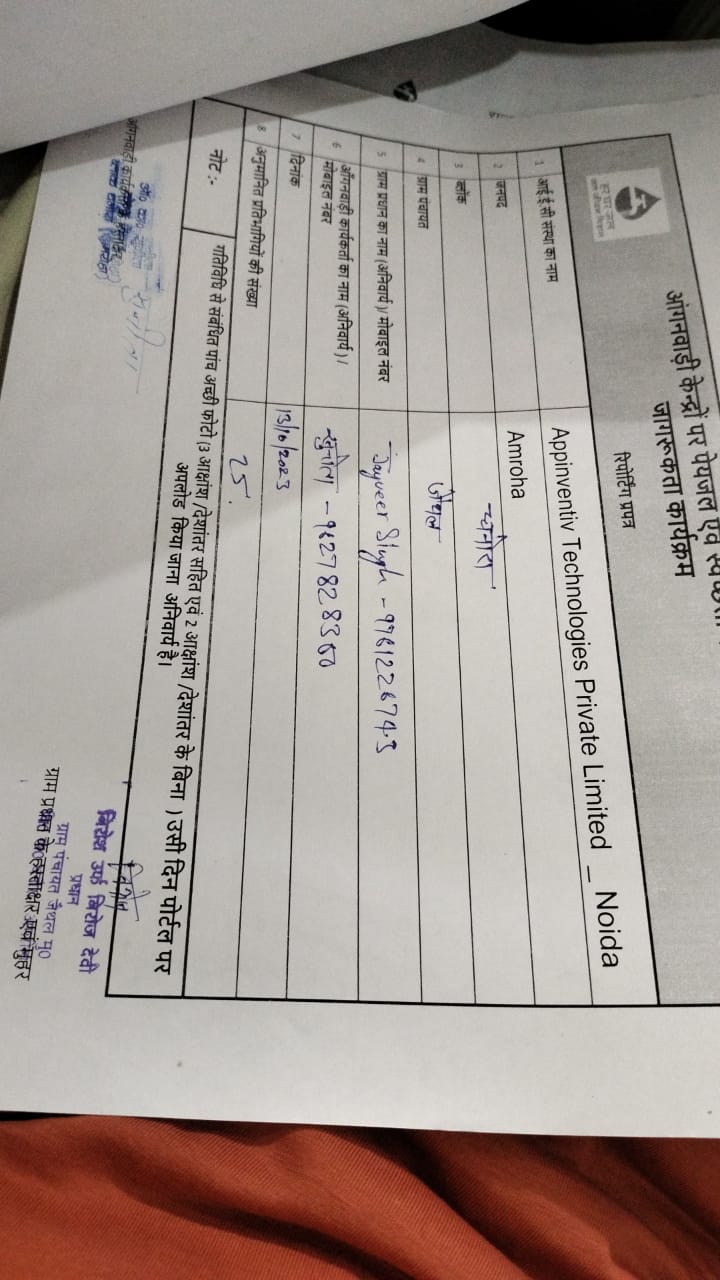 आंगनवाड़ी केन्द्रों पर पेयजल एवं स्वच्छता
जागरूकता कार्यक्रम
हर घर जल
जल जीवन मिशन
रिपोर्टिंग प्रपत्र
1 आई.ई.सी संस्था का नाम Appinventiv Technologies Private Limited _ Noida
2 जनपद Amroha
3 ब्लॉक
4 ग्राम पंचायत जैथल
5 ग्राम प्रधान का नाम (अनिवार्य)/ मोबाइल नंबर Jayveer Singh - 9761226743
6 आँगनवाड़ी कार्यकर्ता का नाम (अनिवार्य) / मोबाइल नंबर सुनीता - 9627828360
7 दिनांक 13/10/2023
8 अनुमानित प्रतिभागियों की संख्या 25.
नोट:- गतिविधि से संबंधित पांच अच्छी फोटो (3 आक्षांश /देशांतर सहित एवं 2 आक्षांश /देशांतर के बिना ) उसी दिन पोर्टल पर
अपलोड किया जाना अनिवार्य है।
सुनीता
आंगनवाड़ी कार्यकर्ता
प्रधान
ग्राम पंचायत जैथल मु0
ग्राम प्रधान के हस्ताक्षर एवं मुहर